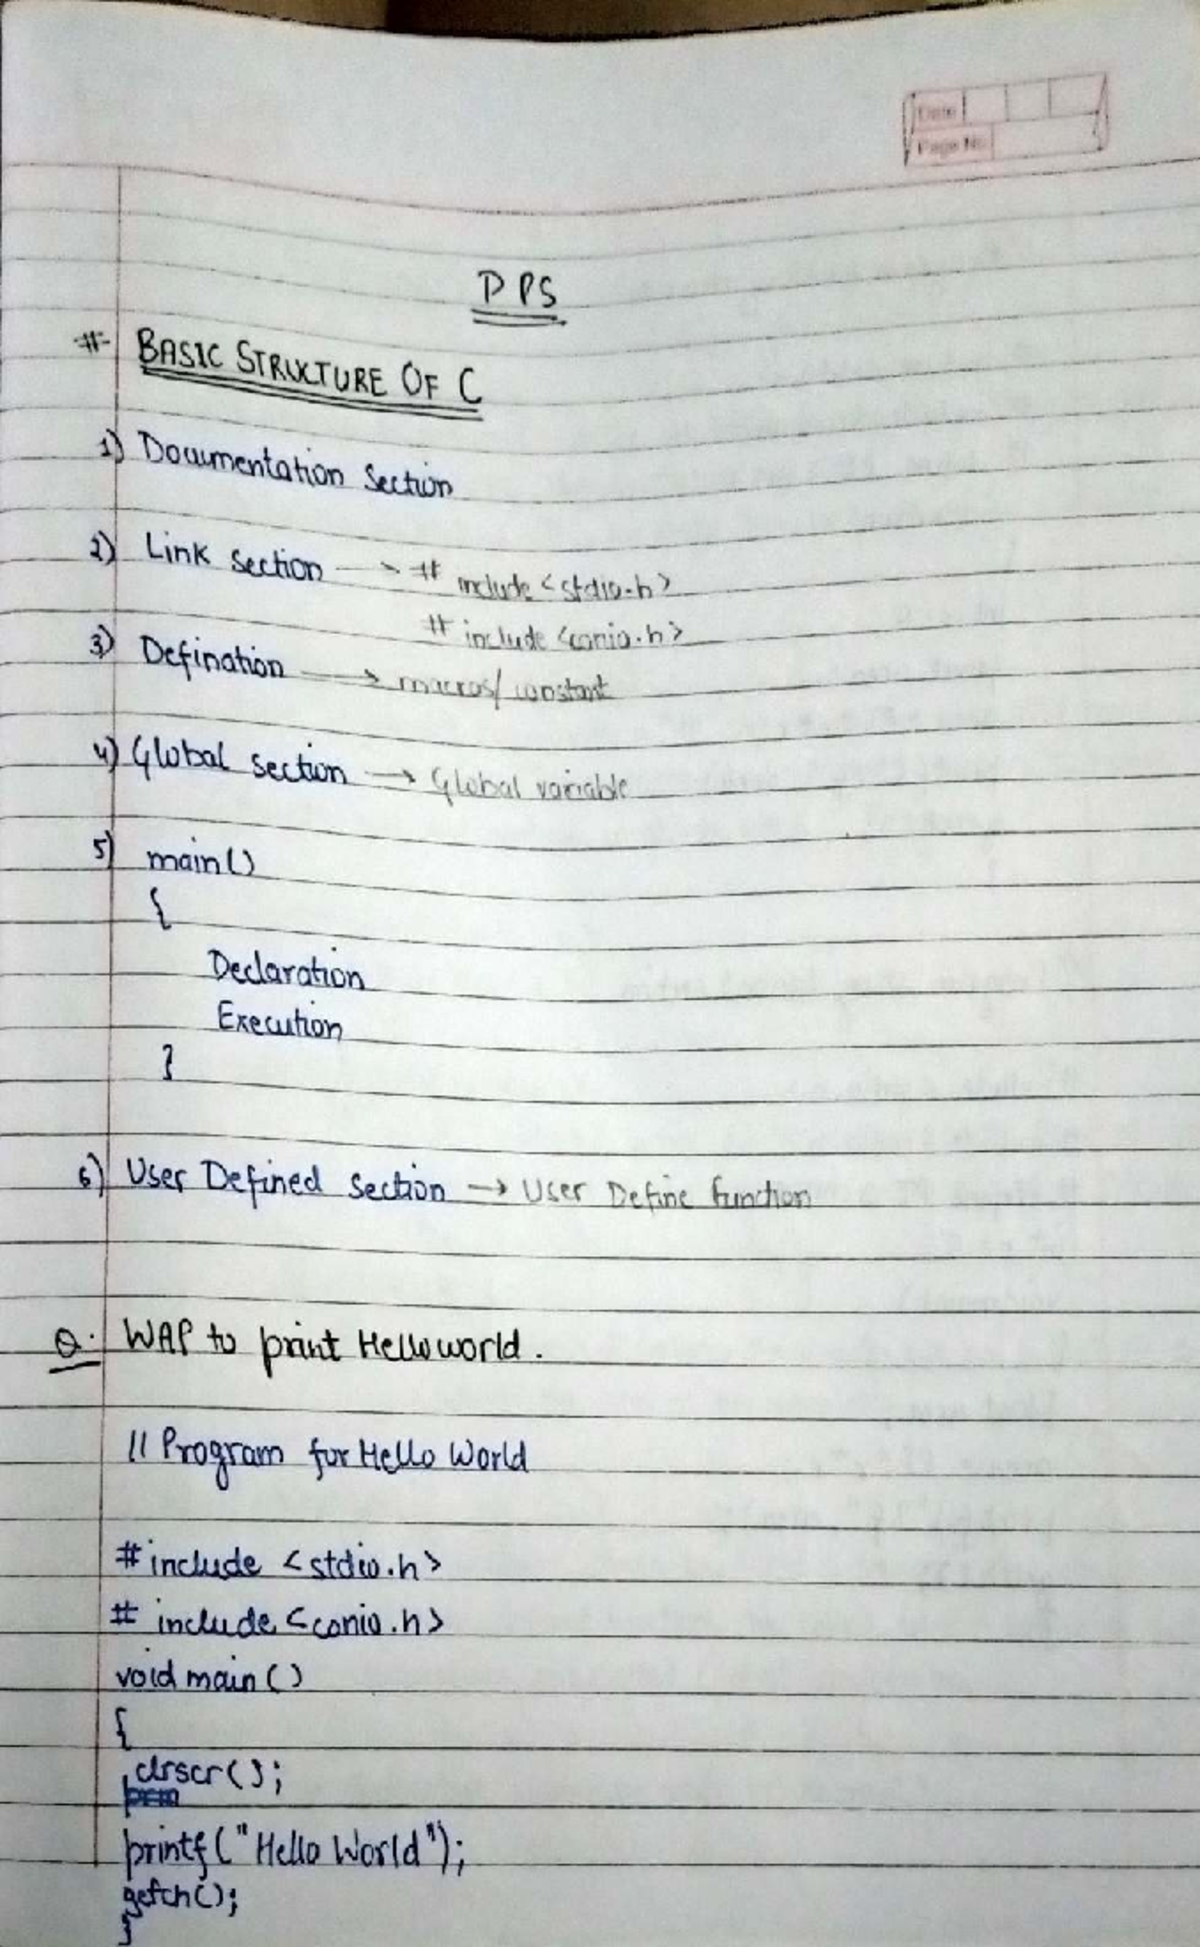 Date
Page No.
DPS
# BASIC STRUCTURE OF C
1) Documentation Section
2) Link section → # include <stdio.h>
# include <conio.h>
3) Defination → macros/ constant
4) Global section → Global variable
5) main()
{
Declaration
Execution
}
6) User Defined section → User Define function
Q. WAP to print Helloworld.
// Program for Hello World
#include <stdio.h>
# include <conio.h>
void main ()
{
clrscr();
printf("Hello World");
getch();
}